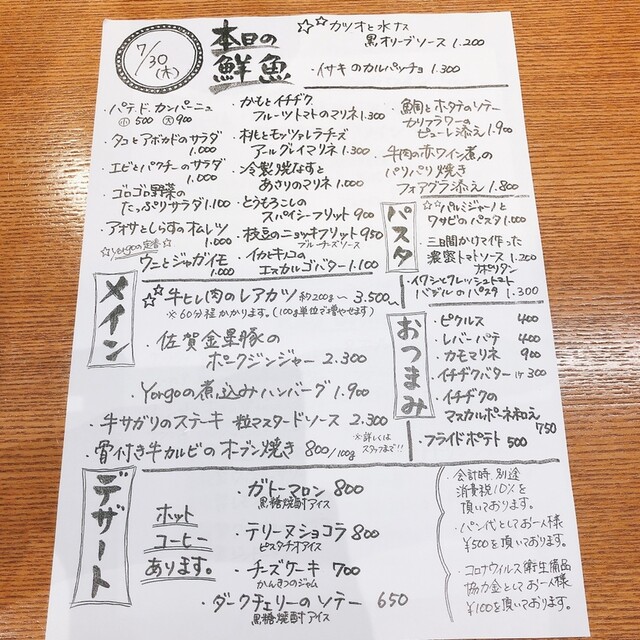 7/30
(木)
本日の
鮮魚
☆☆カツオと水ナス
黒オリーブソース 1.200
・イサキのカルパッチョ 1.300
・パテ・ド・カンパーニュ
小 500 大 900
・タコとアボカドのサラダ
1.000
・エビとパクチーのサラダ
1.000
・ゴロゴロ野菜の
たっぷりサラダ 1.100
・アオサとしらすのオムレツ
1.000
☆Yorgoの定番☆
ウニとジャガイモ
1.000
・かもとイチヂク
フルーツトマトのマリネ 1.300
・桃とモッツァレラチーズ
アールグレイマリネ 1.300
・冷製焼なすと
あさりのマリネ 1.000
・とうもろこしの
スパイシーフリット 900
・枝豆のニョッキフリット 950
ブルーチーズソース
・イカとキノコの
エスカルゴバター 1.100
・鯛とホタテのソテー
カリフラワーの
ピューレ添え 1.900
・牛肉の赤ワイン煮の
パリパリ焼き
フォアグラ添え 1.800
パスタ
☆☆パルミジャーノと
ワサビのパスタ 1.000
・三日間かけて作った
濃蜜トマトソース 1.200
ポリタン
・イワシとフレッシュトマト
バジルのパスタ 1.300
メイン
☆☆牛ヒレ肉のレアカツ 約200g〜 3.500〜
※60分程かかります。(100g単位で増やせます)
・佐賀金星豚の
ポークジンジャー 2.300
・Yorgoの煮込みハンバーグ 1.900
・牛サガリのステーキ 粒マスタードソース 2.300
・骨付き牛カルビのオーブン焼き 800/100g
※詳しくは
スタッフまで!!
おつまみ
・ピクルス 400
・レバーパテ 400
・カモマリネ 900
・イチヂクバター 1ヶ 300
・イチヂクの
マスカルポーネ和え
750
・フライドポテト 500
デザート
ホット
コーヒー
あります。
・ガトーマロン 800
黒糖焼酎アイス
・テリーヌショコラ 800
ピスタチオアイス
・チーズケーキ 700
かんきつのジャム
・ダークチェリーのソテー 650
黒糖焼酎アイス
・会計時、別途
消費税10%を
頂いております。
・パン代としてお一人様
¥500を頂いております。
・コロナウイルス衛生備品
協力金としてお一人様
¥100を頂いております。